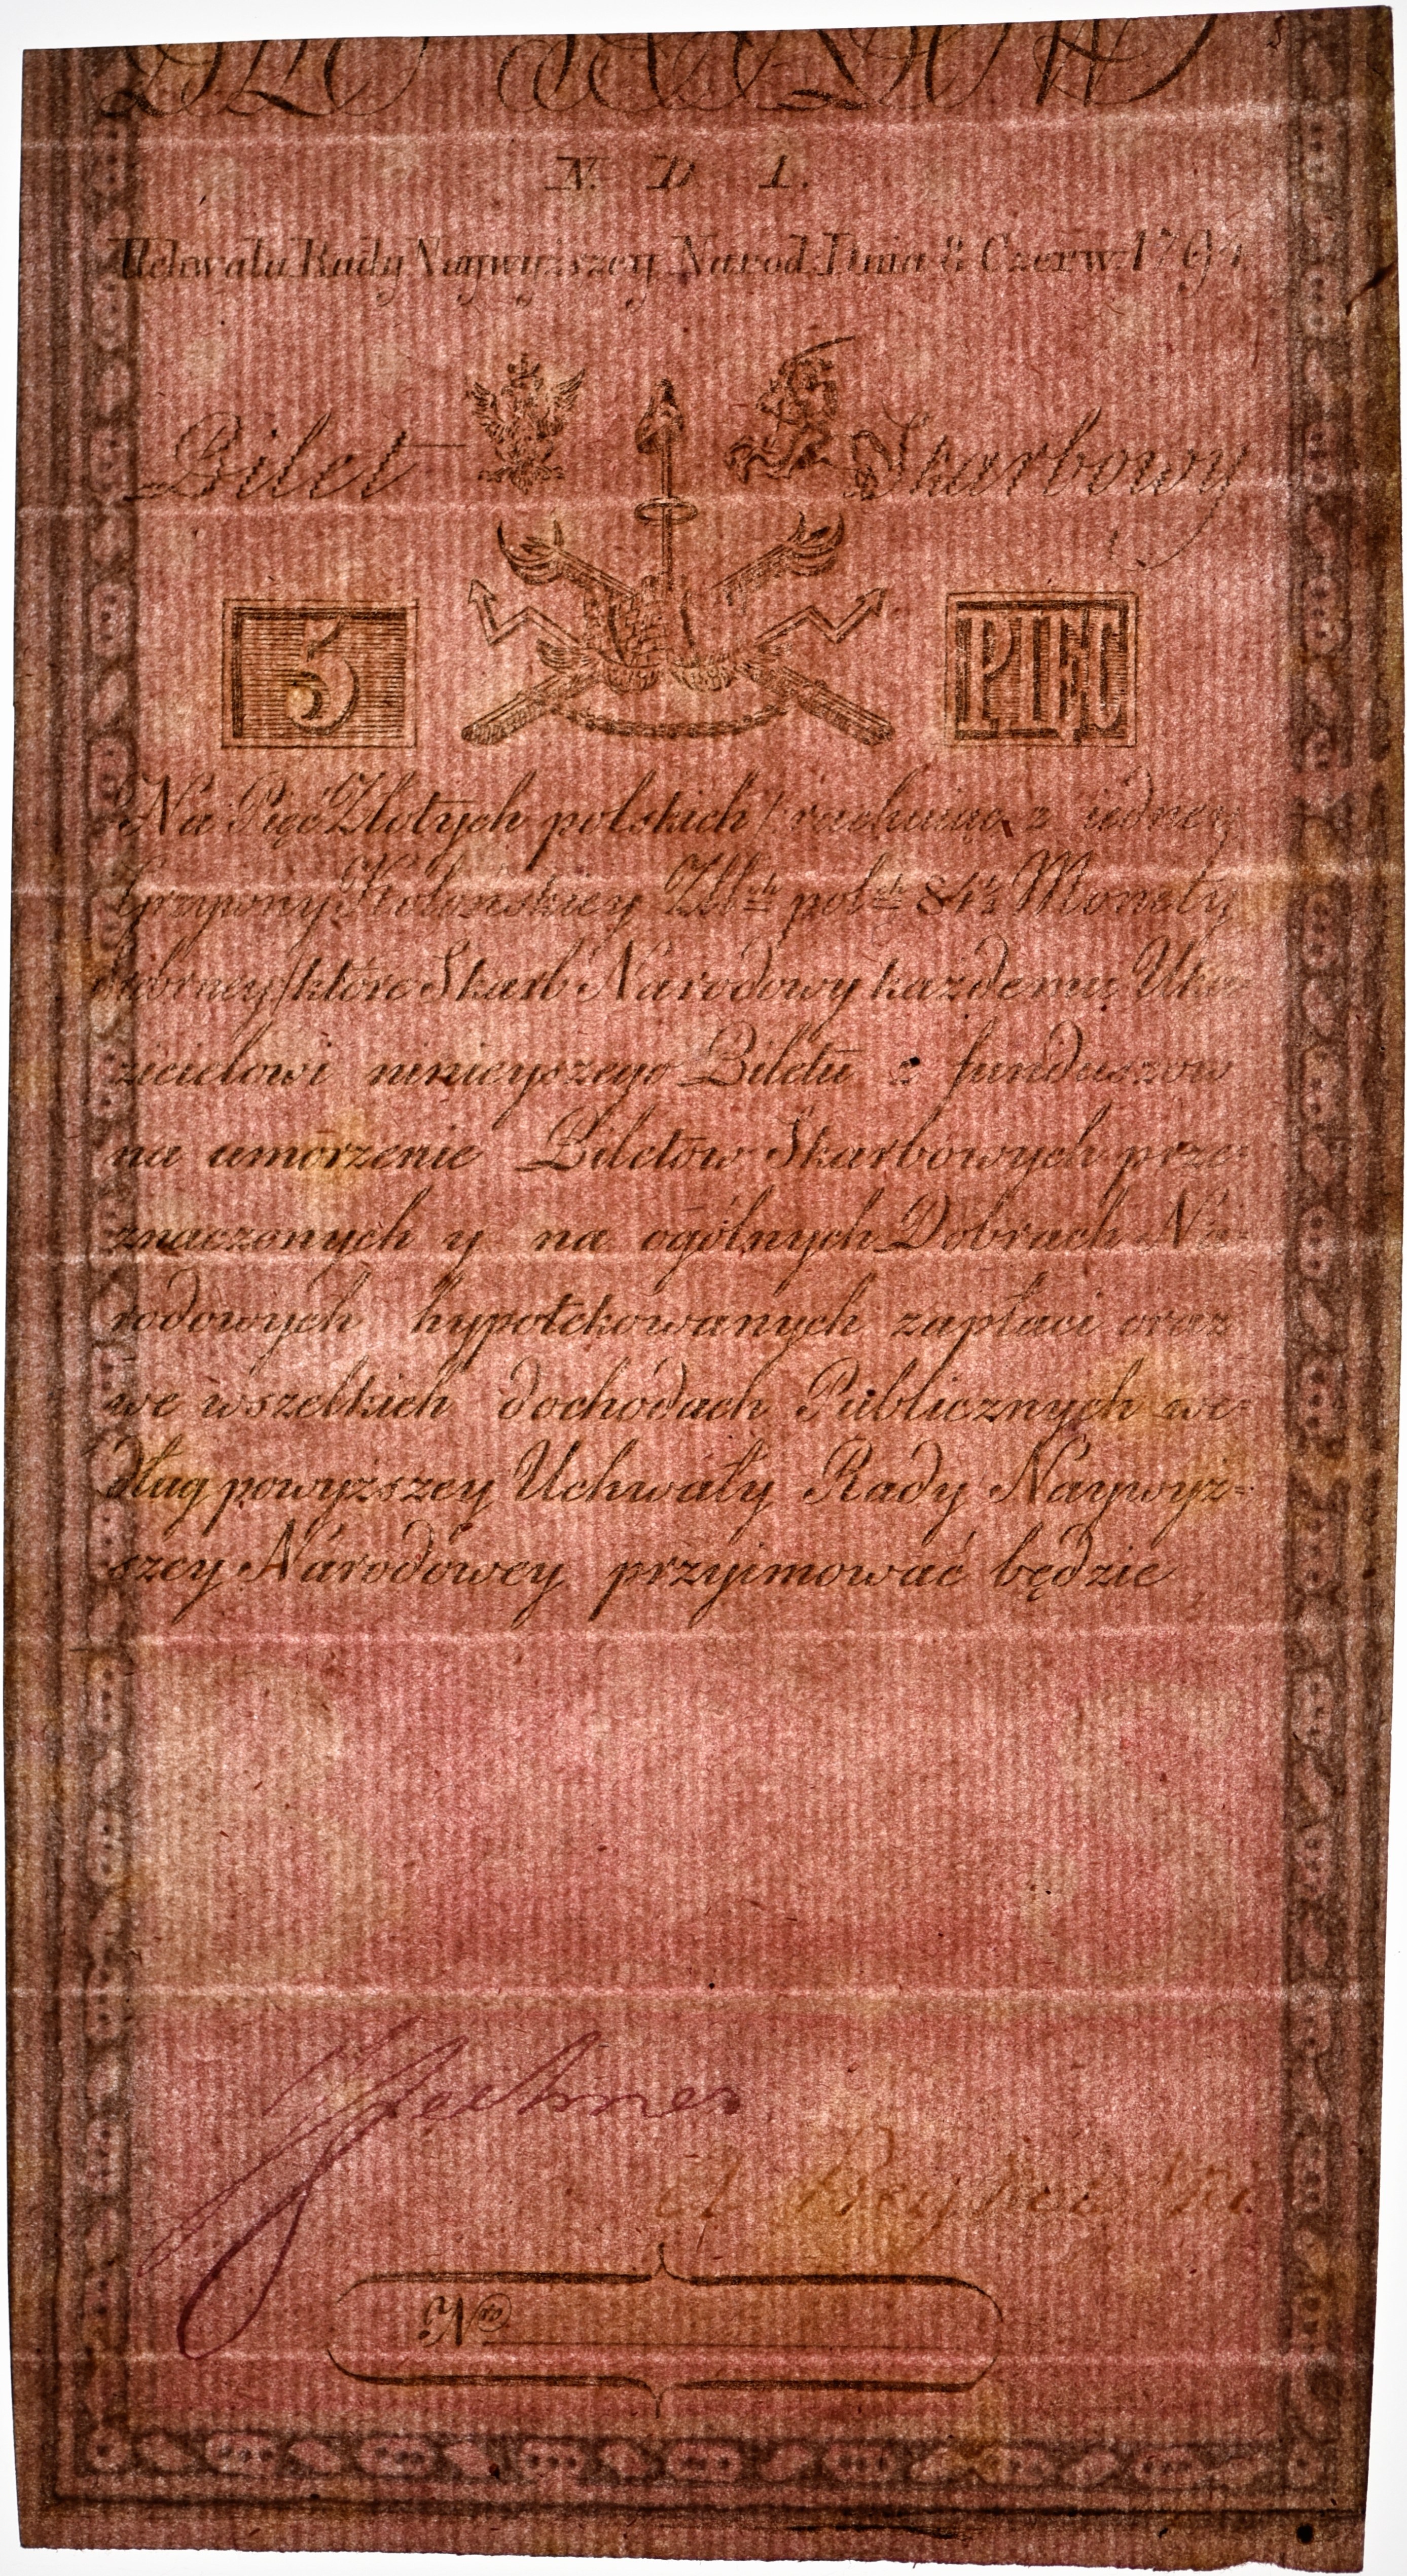 N. D 1.
Uchwała Rady Naywyższey Narod. Dnia 8 Czerw. 1794.
Bilet Skarbowy
5 PIĘC
Na Pięc Złotych polskich / rachuiąc z iedney
Grzywny Kolońskiey Złł.ch pol.ch 84½ Monety
srebrney / które Skarb Narodowy każdemu Uka-
zicielowi ninieyszego Biletu z funduszow
na umorzenie Biletów Skarbowych prze-
znaczonych y na ogólnych Dobrach Na-
rodowych hypotekowanych zapłaci oraz
we wszelkich dochodach Publicznych we-
dług powyższey Uchwały Rady Naywyż=
szey Narodowey przyimować będzie
N.ro